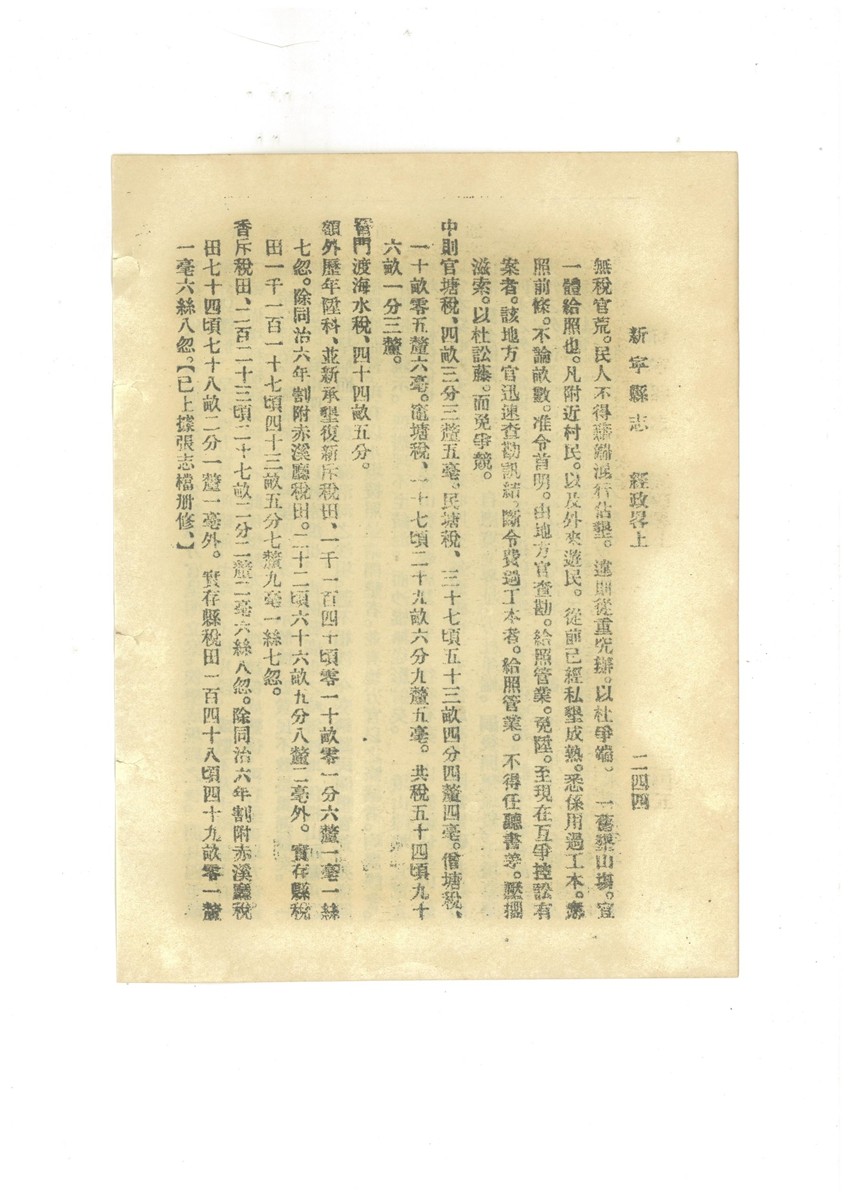 新寧縣志 經政畧上 二四四
無稅官荒。民人不得藉端混行佔墾。違則從重究辦。以杜爭端。 一舊墾山塲。宜
一體給照也。凡附近村民。以及外來遊民。從前已經私墾成熟。悉係用過工本。應
照前條。不論畝數。准令首明。由地方官查勘。給照管業。免陞。至現在互爭控訟有
案者。該地方官迅速查勘訊結。斷令費過工本者。給照管業。不得任聽書差。壓擱
滋索。以杜訟藤。而免爭競。
中則官塘稅、四畝三分三釐五毫。民塘稅、三十七頃五十三畝四分四釐四毫。僧塘稅、
一十畝零五釐六毫。竈塘稅、一十七頃二十九畝六分九釐五毫。共稅五十四頃九十
六畝一分三釐。
門渡海水稅、四十四畝五分。
額外歷年陞科、並新承墾復新斥稅田、一千一百四十頃零一十畝零一分六釐一毫一絲
七忽。除同治六年割附赤溪廳稅田。二十二頃六十六畝九分八釐二毫外。實存縣稅
田一千一百一十七頃四十三畝五分七釐九毫一絲七忽。
香斥稅田、二百二十三頃二十七畝二分二釐二毫六絲八忽。除同治六年割附赤溪廳稅
田七十四頃七十八畝二分一釐一毫外。實存縣稅田一百四十八頃四十九畝零一釐
一毫六絲八忽。【已上據張志檔册修、】